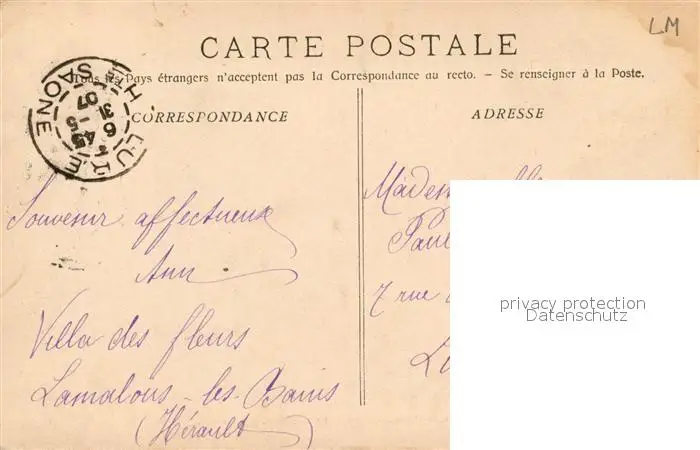 LM
CARTE POSTALE
Tous les Pays étrangers n'acceptent pas la Correspondance au recto. - Se renseigner à la Poste.
CORRESPONDANCE
ADRESSE
LURE
Hte SAONE
6 45
31 - 5
07
Souvenir affectueux
Ann
Villa des fleurs
Lamalous-les-Bains
(Hérault)
Paul
7 rue
privacy protection
Datenschutz